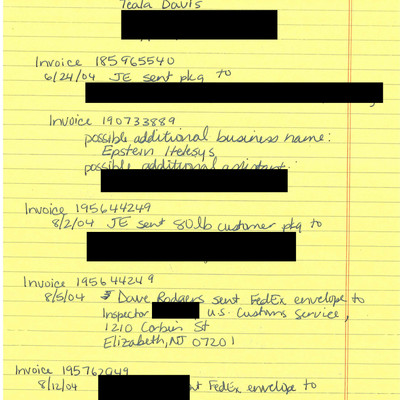 Teala Davis
Invoice 185965540
6/24/04 JE sent pkg to
Invoice 190733889
possible additional business name:
Epstein
possible additional assistant:
Invoice 195644249
8/2/04 JE sent 80lb customer pkg to
Invoice 195644249
8/5/04 Dave Rodgers sent FedEx envelope to
Inspector U.S. Customs Service,
1210 Corbin St
Elizabeth, NJ 07201
Invoice 195762049
8/12/04 FedEx envelope to